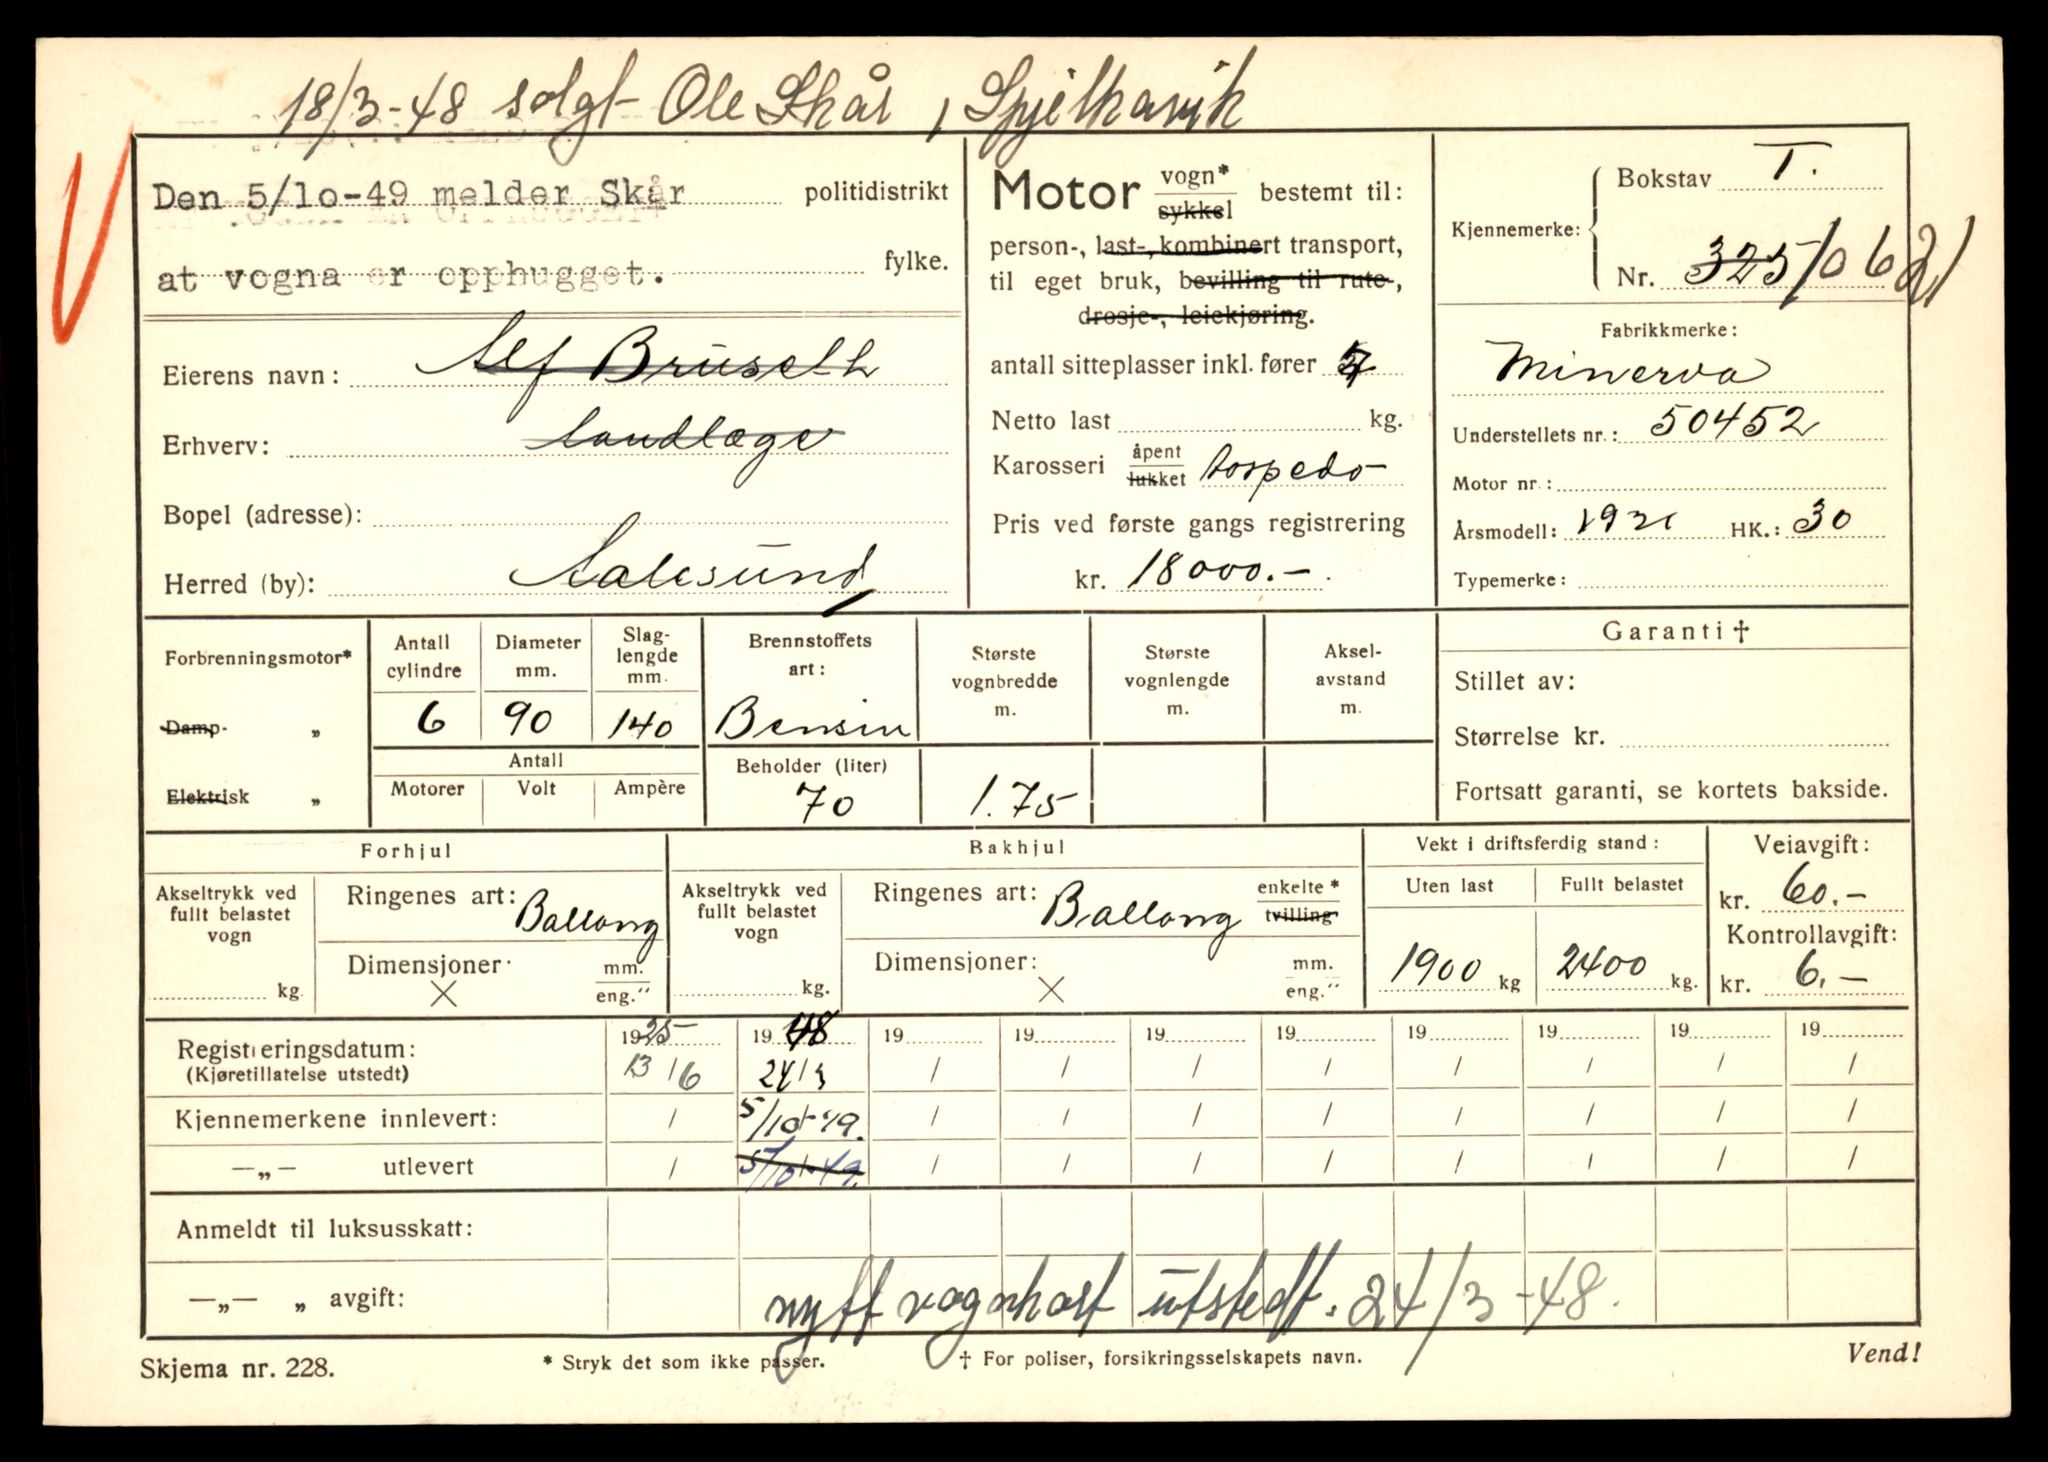 18/3-48 solgt Ole Skår, Spjelkavik
Den 5/10-49 melder Skår politidistrikt
at vogna er opphugget. fylke.
Eierens navn: Alf Bruseth
Erhverv: landlæge
Bopel (adresse):
Herred (by): Aalesund
Motor vogn* sykkel bestemt til:
person-, last-, kombinert transport,
til eget bruk, bevilling til rute-,
drosje-, leiekjøring.
antall sitteplasser inkl. fører 7
Netto last kg.
Karosseri åpent lukket torpedo
Pris ved første gangs registrering
kr. 18000.-
Kjennemerke: Bokstav T.
Nr. 325 / 10621
Fabrikkmerke:
Minerva
Understellets nr.: 50452
Motor nr.:
Årsmodell: 1921 HK.: 30
Typemerke:
Forbrenningsmotor*
Damp- „
Elektrisk „
Antall cylindre
Diameter mm.
Slag-lengde mm.
Brennstoffets art:
Største vognbredde m.
Største vognlengde m.
Aksel-avstand m.
6 90 140 Bensin
Antall
Motorer Volt Ampère
Beholder (liter)
70 1.75
Garanti †
Stillet av:
Størrelse kr.
Fortsatt garanti, se kortets bakside.
Forhjul
Akseltrykk ved fullt belastet vogn
kg.
Ringenes art: Ballong
Dimensjoner: × mm. eng.“
Bakhjul
Akseltrykk ved fullt belastet vogn
kg.
Ringenes art: Ballong enkelte* tvilling
Dimensjoner: × mm. eng.“
Vekt i driftsferdig stand:
Uten last Fullt belastet
1900 kg 2400 kg.
Veiavgift:
kr. 60.-
Kontrollavgift:
kr. 6.-
Registreringsdatum: 1925 1948 19 19 19 19 19 19 19 19
(Kjøretillatelse utstedt) 13/6 24/3 / / / / / / / /
Kjennemerkene innlevert: / 5/10-49. / / / / / / / /
—„— utlevert / 5/10-49. / / / / / / / /
Anmeldt til luksusskatt:
—„— „ avgift: nytt vognkort utstedt. 24/3-48.
Skjema nr. 228. * Stryk det som ikke passer. † For poliser, forsikringsselskapets navn. Vend!